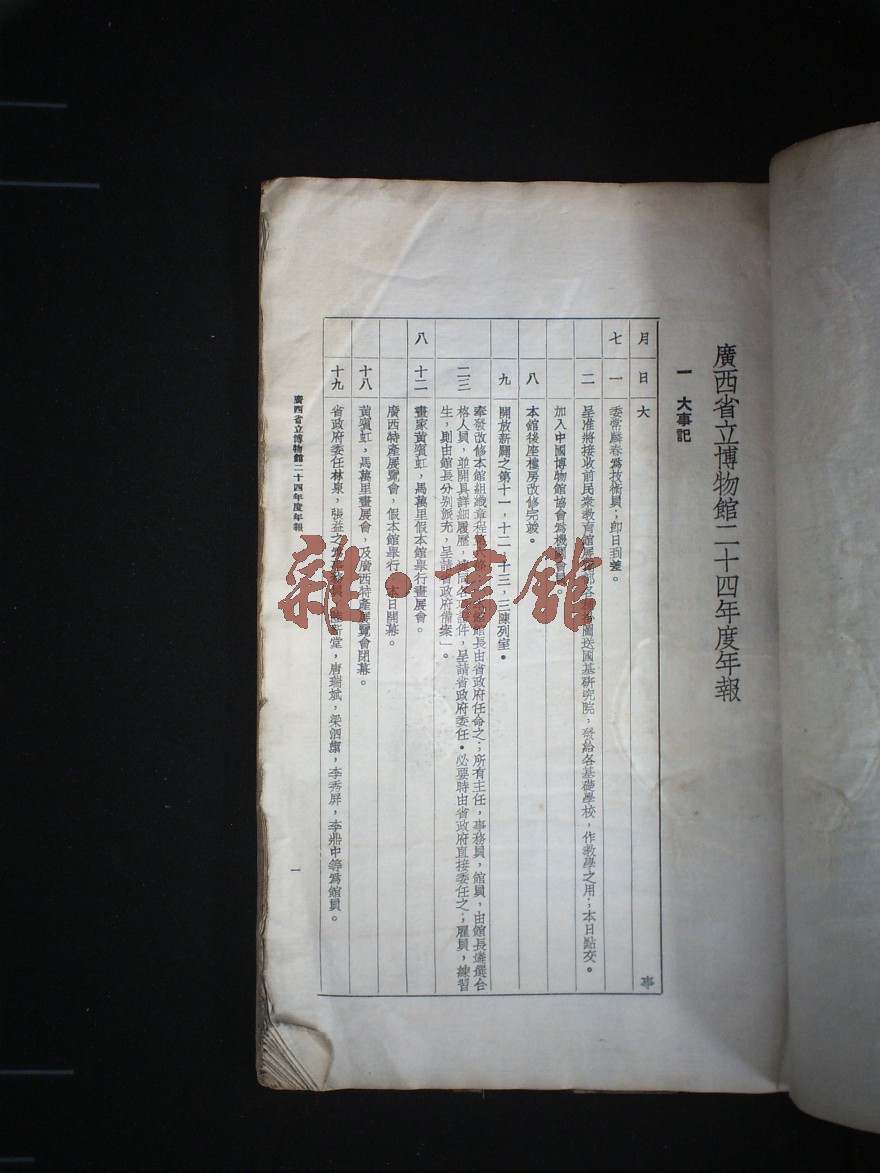 廣西省立博物館二十四年度年報
一 大事記
月 日 大 事
七 一 委常麟春爲技術員，卽日到差。
二 呈准將接收前民衆敎育館展 部各 圖送國基硏究院，發給各基礎學校，作敎學之用；本日點交。
加入中國博物館協會爲機關會員
八 本館後座樓房改修完竣。
九 開放新闢之第十一，十二，十三，三陳列室。
二三 奉發改修本館組織章程 館長由省政府任命之；所有主任，事務員，館員，由館長遴選合
格人員，並開具詳細履歷， 件，呈請省政府委任。必要時由省政府直接委任之；雇員，練習
生，則由館長分別派充，呈請省政府備案」。
八 十二 畫家黃賓虹，馬萬里假本館舉行畫展會。
廣西特產展覽會，假本館舉行，本日開幕。
十八 黃賓虹，馬萬里畫展會，及廣西特產展覽會閉幕。
十九 省政府委任林泉，張益之爲事務員， 堂，唐瑞斌，梁泗 ，李秀屏，李鼎中等爲館員。
廣西省立博物館二十四年度年報
一
雜·書館